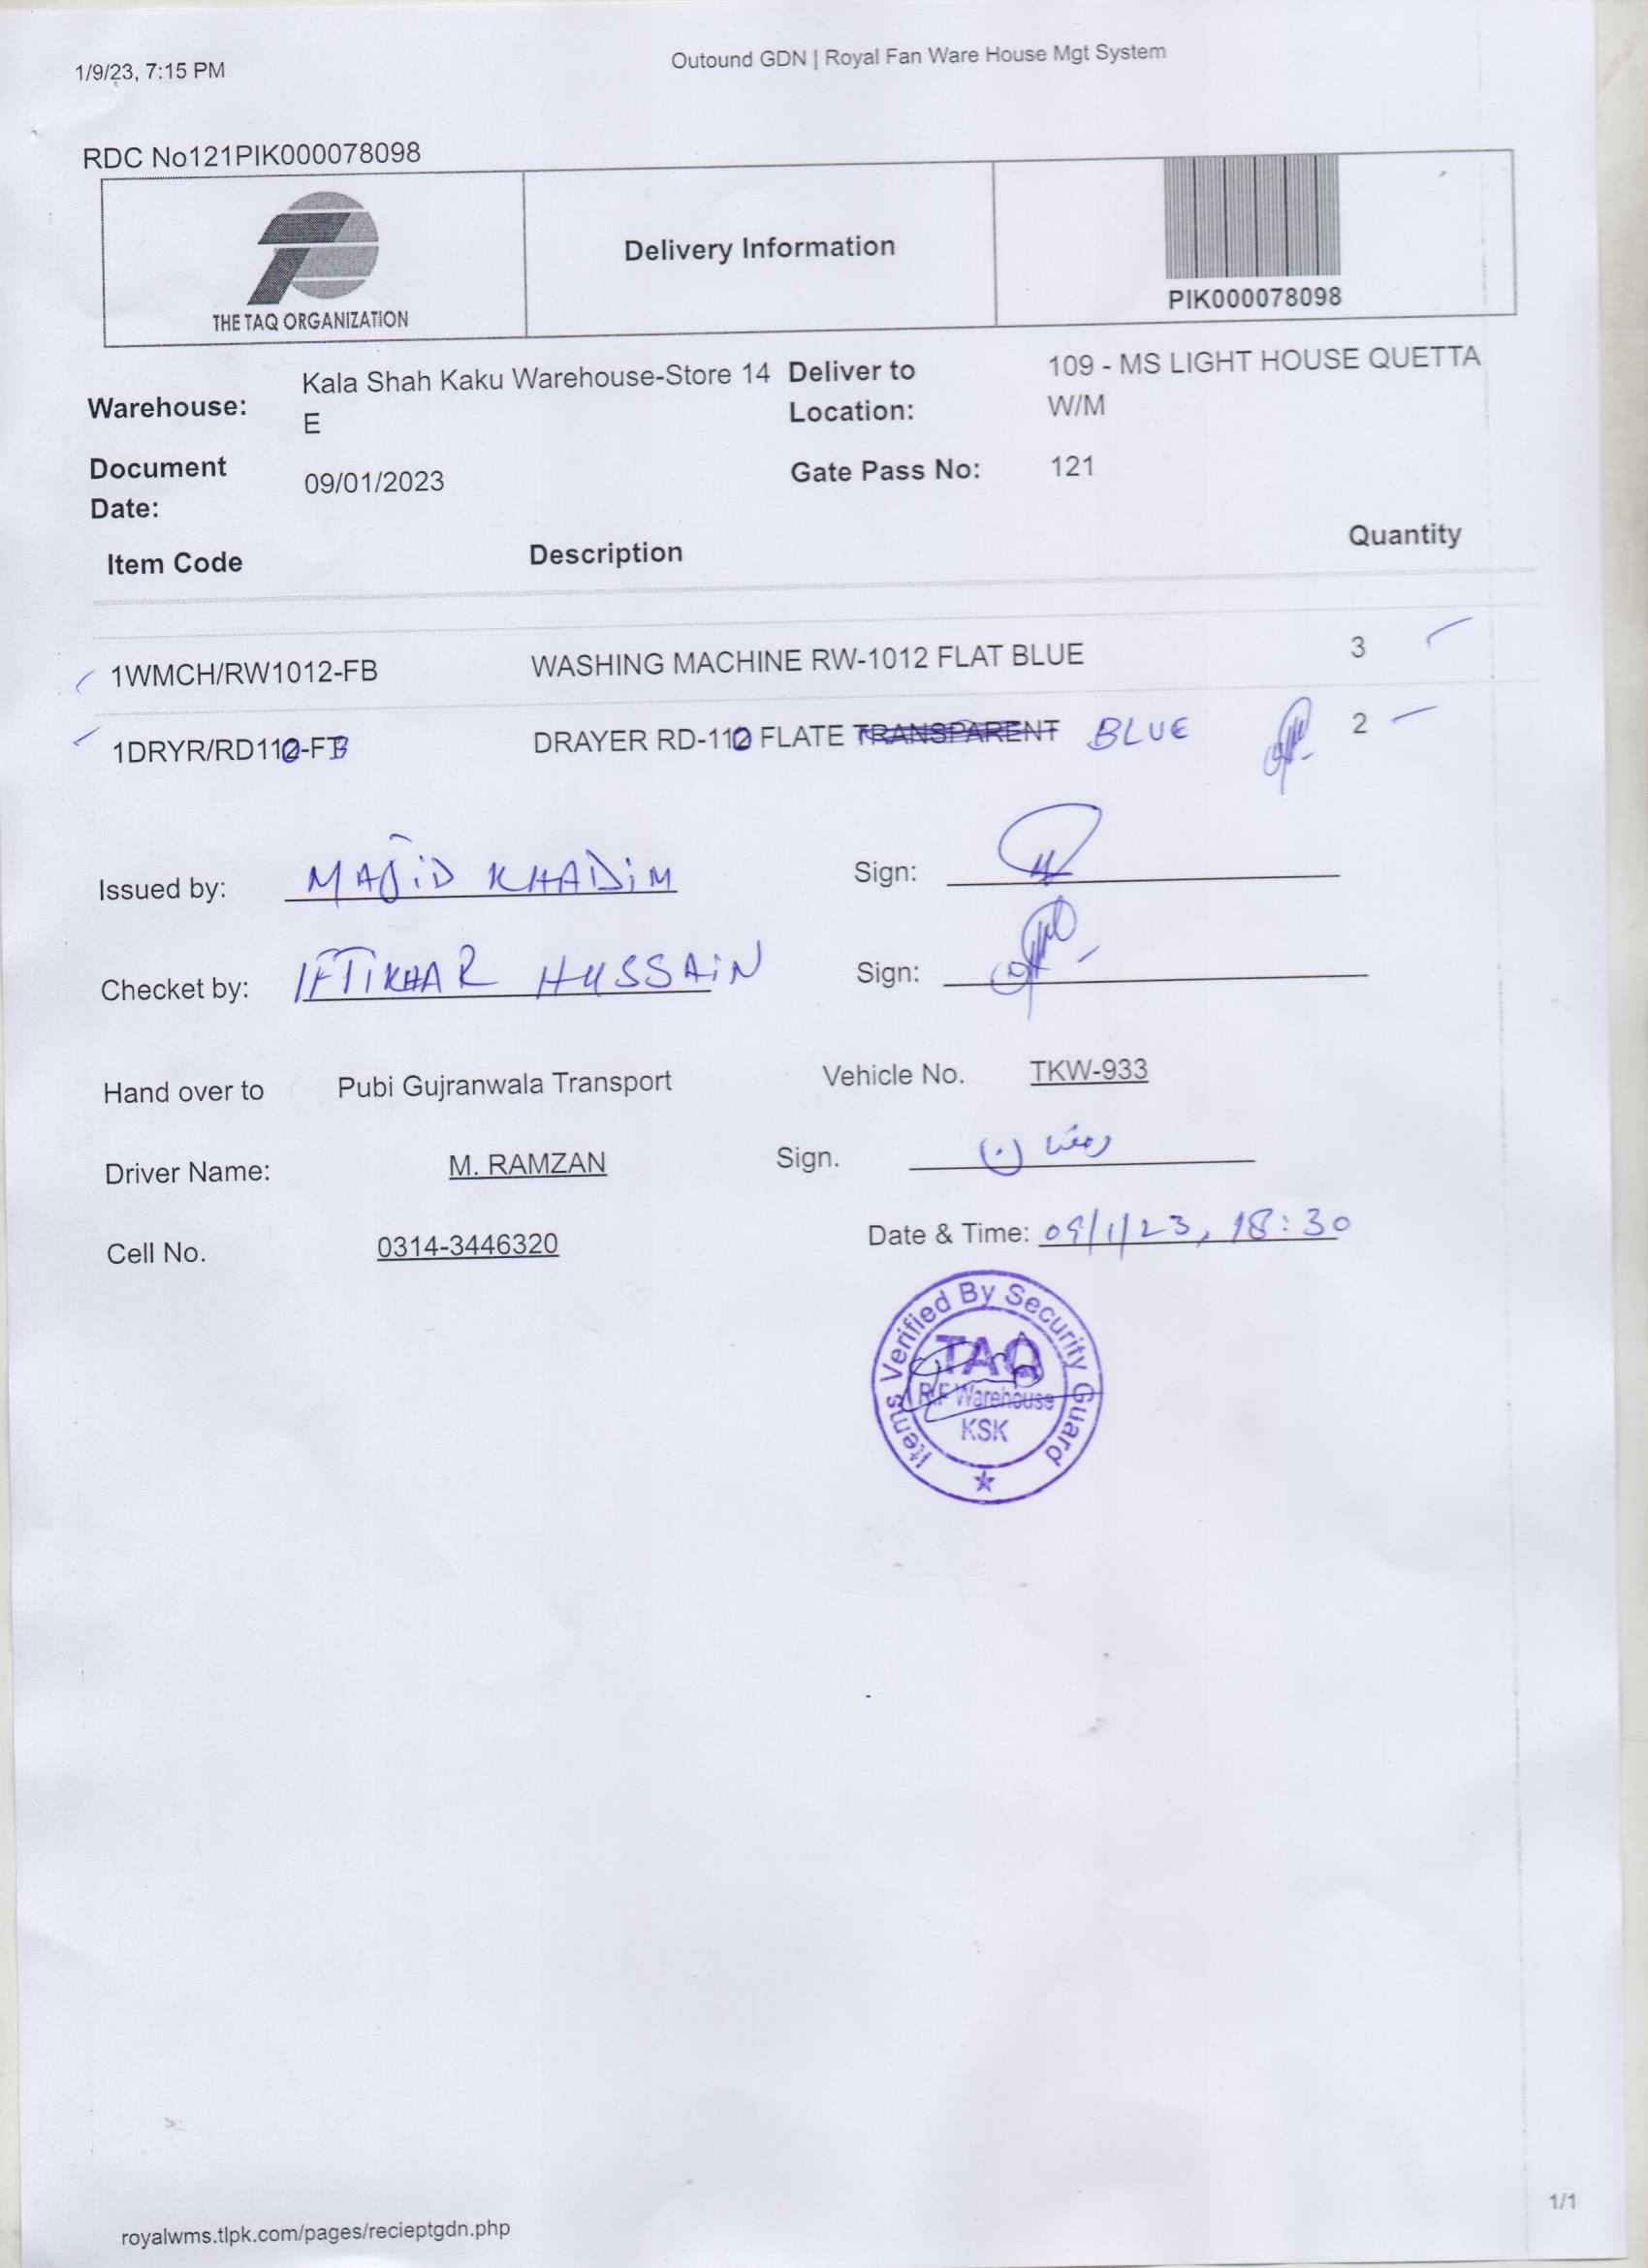 1/9/23, 7:15 PM
Outound GDN | Royal Fan Ware House Mgt System
RDC No121PIK000078098
THE TAQ ORGANIZATION
Delivery Information
PIK000078098
Warehouse: Kala Shah Kaku Warehouse-Store 14 E
Deliver to Location: 109 - MS LIGHT HOUSE QUETTA W/M
Document Date: 09/01/2023
Gate Pass No: 121
Item Code Description Quantity
1WMCH/RW1012-FB WASHING MACHINE RW-1012 FLAT BLUE 3
1DRYR/RD110-FB DRAYER RD-110 FLATE TRANSPARENT BLUE 2
Issued by: MAJID KHADIM Sign:
Checket by: IFTIKHAR HUSSAIN Sign:
Hand over to Pubi Gujranwala Transport Vehicle No. TKW-933
Driver Name: M. RAMZAN Sign.
Cell No. 0314-3446320 Date & Time: 09/1/23, 18:30
Items Verified By Security Guard
TAQ
R.F Warehouse
KSK
royalwms.tlpk.com/pages/recieptgdn.php
1/1